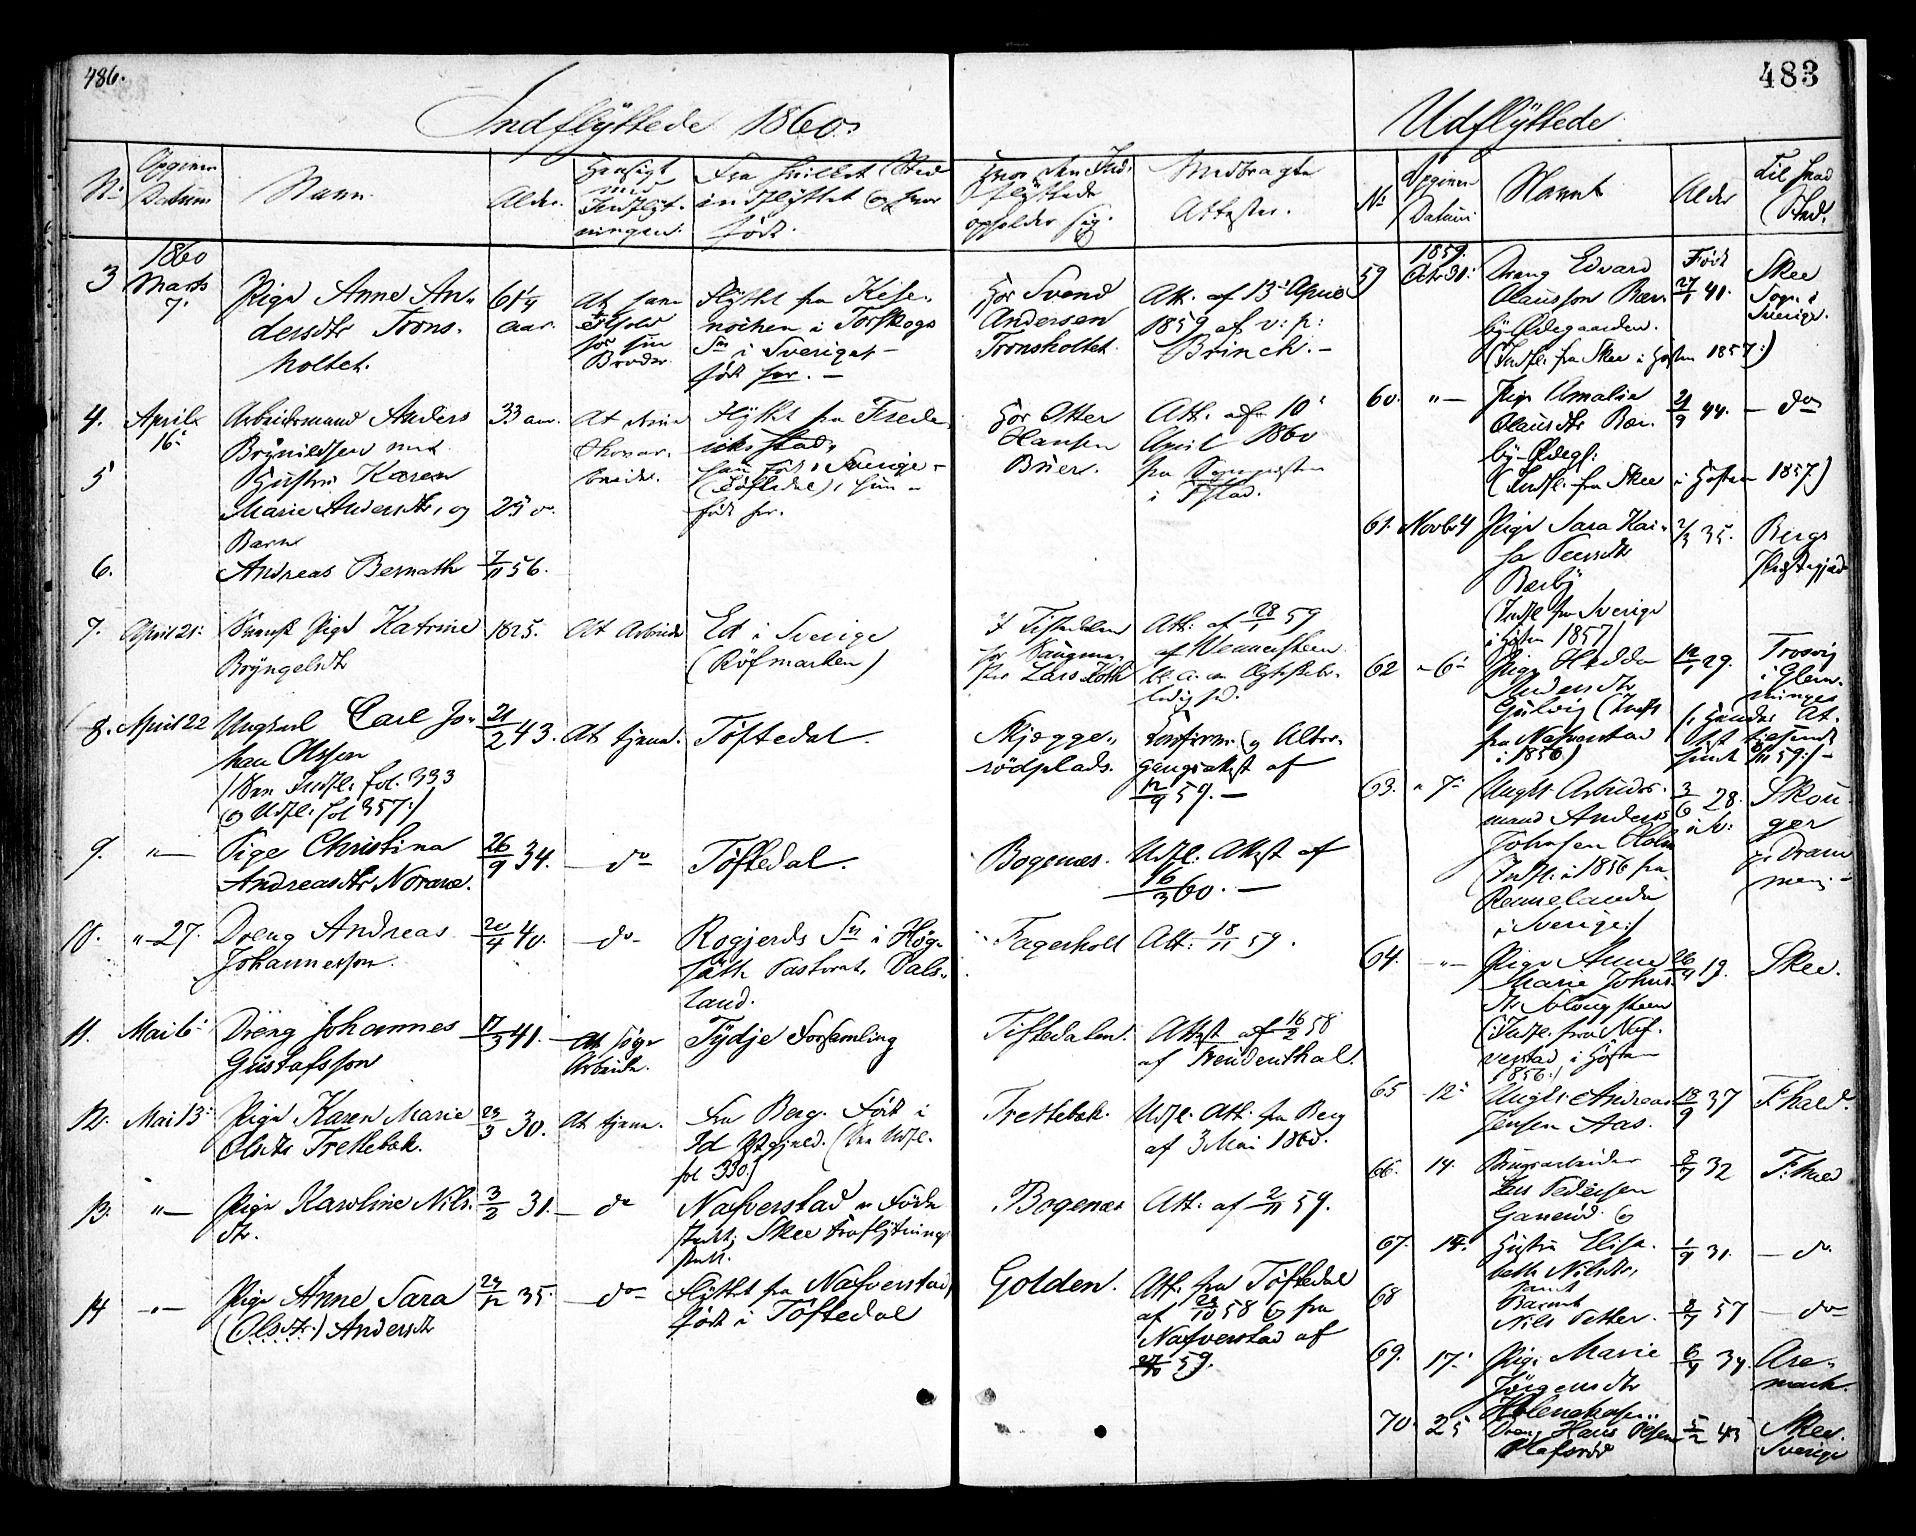 486.
483
Indflÿttede 1860.
Udflÿttede
No
Opgiven
Datum
Navn
Alder
Hensigt
med
Indflyt-
ningen
Fra hvilket Sted
indflÿttet og hvor
født.
Hvor den Ind-
flÿttede
opholder sig.
Medbragte
Attester.
No
Opgiven
Datum
Navnet
Alder
Til hvad
Sted.
1860
3 Marts
7.
Pige Anne An-
dersdtr Trons-
holtet.
61¼
aar.
At
for sin
Broder
flÿttet fra Kise-
nöchen i Torskogs
Sn i Sveriget -
født her. -
Hos Svend
Andersen
Tronsholtet.
Att. af 13de April
1859 af v: p:
Brinch. -
4. April
16
Arbeidsmand Anders
Brÿnildsen med
5
Hustru Karen
Marie Andersdtr, og
Barn
6.
Andreas Bernath
33 aar.
25 o.
7/11 56.
At drive
Skomar-
beide.
flÿttet fra Frede-
rikstad,
han født i Sverige -
(Töftedal), hun -
født her.
Hos Otter
Hansen
Brier.
Att. af 10de
April 1860
fra Sognepresten
i Fstad.
7. April 21.
Svensk Pige Katrine
Brÿngelsdtr
1825.
At Arbeide
Ed i Sverige
(Röfmarken)
I Tistedalen
hos Baugme-
ster Lars Loth
Att. af 28/1 59
af Wennersteen
bl. a. om Egteskabs-
ledighed.
8. April 22
Ungkarl Carl Jo-
han Olssen
(See Indfl. fol. 333
og Udfl. fol 357.)
21/2 43.
At tjene.
Töftedal.
Skjegge-
rödplads.
Konfirm. og Alter-
gangsattest af
12/9 59. -
9. "-
Pige Christina
Andreasdtr Norane.
26/9 34.
- do
Töftedal.
Bogenæs.
Udfl. Attest af
16/3 60. -
10. "-27.
Dreng Andreas
Johannesson.
20/4 40.
- do -
Rogjerds Sn i Hög-
säth Pastorat, Dals-
land.
Fagerholt
Att. 18/11 59.
11. Mai 6
Dreng Johannes
Gustafsson
17/3 41.
At söge
Arbeide.
Tÿdje Forsamling
Tistedalen.
Attest af 16/2 58
af Freudenthal.
12. Mai 13
Pige Karen Marie
Olsdtr Trettebak.
23/3 30.
At tjene.
Fra Berg. Född i
Id Pstgjeld. (See Udfl.
fol 330)
Trettebak.
Udfl. Att. fra Berg
af 3 Mai 1860.
13. "-
Pige Karoline Nils-
dtr.
3/2 31.
- do
Nafverstad " Føde
stedet; Skee Fraflÿtnings
stedt.
Bogenæs
Att. af 2/11 59.
14 -"-
Pige Anne Sara
(Olsdtr.) Andersdtr
24/12 35.
- do -
flÿttet fra Nafverstad,
født i Töftedal
Golden.
Att. fra Töftedal
af 23/10 58 og fra
Nafverstad af
27/10 59.
1859.
59 Octr 31.
Dreng Edvard
Olausson Bær-
by-Ødegaarden.
(Indfl. fra Skee i Høsten 1857.)
Født
27/1 41.
Skee
Sogn i
Sverige.
60. "-
Pige Amalia
Olausdtr Bær-
by-Ødegd:
(Indfl. fra Skee i Høsten 1857.)
21/9 44.
- do
61. Novbr 4
Pige Sara Kai-
sa Peersdtr
Bærbÿ
(Indfl fra Sverige
i Høsten 1857)
2/3 35.
Bergs
Prestegjæld
62 "6
Pige Hedda
Andersdtr
Gulvig (Indfl
fra Nafverstad
i 1856)
12/1 29.
Trosvig
i Glem-
minge
63. "7
Ungk. Arbeids-
mand Anders
Johnsen Holm
(Indfl. i 1856 fra
Rennelanda
i Sverige.)
3/6 28.
Skou-
ger
v. Dram
men. -
64. -"-
Pige Anne
Marie Johns-
dtr Solaugsteen
(Indfl. fra Naf-
verstad i Høsten
1856.)
26/4 19.
Skee.
65 12
Ungk. Andreas
Jensen Aas.
13/9 37
F:hald.
66. 14.
Brugsarbeider
Lars Pedersen
Ganerød og
8/7 32
F:hald
67. 14.
Hustru Elisa-
beth Nilsdtr,
samt
1/9 31.
- do
68
Barnet
Nils Petter.
8/7 57
- do
69. 17
Pige Marie
Jörgensdtr
Holenehagen
6/4 34
Are-
mark.
70 25
Dreng Hans Olsen
Klafsröd
5/2 43
Skee
Sverige